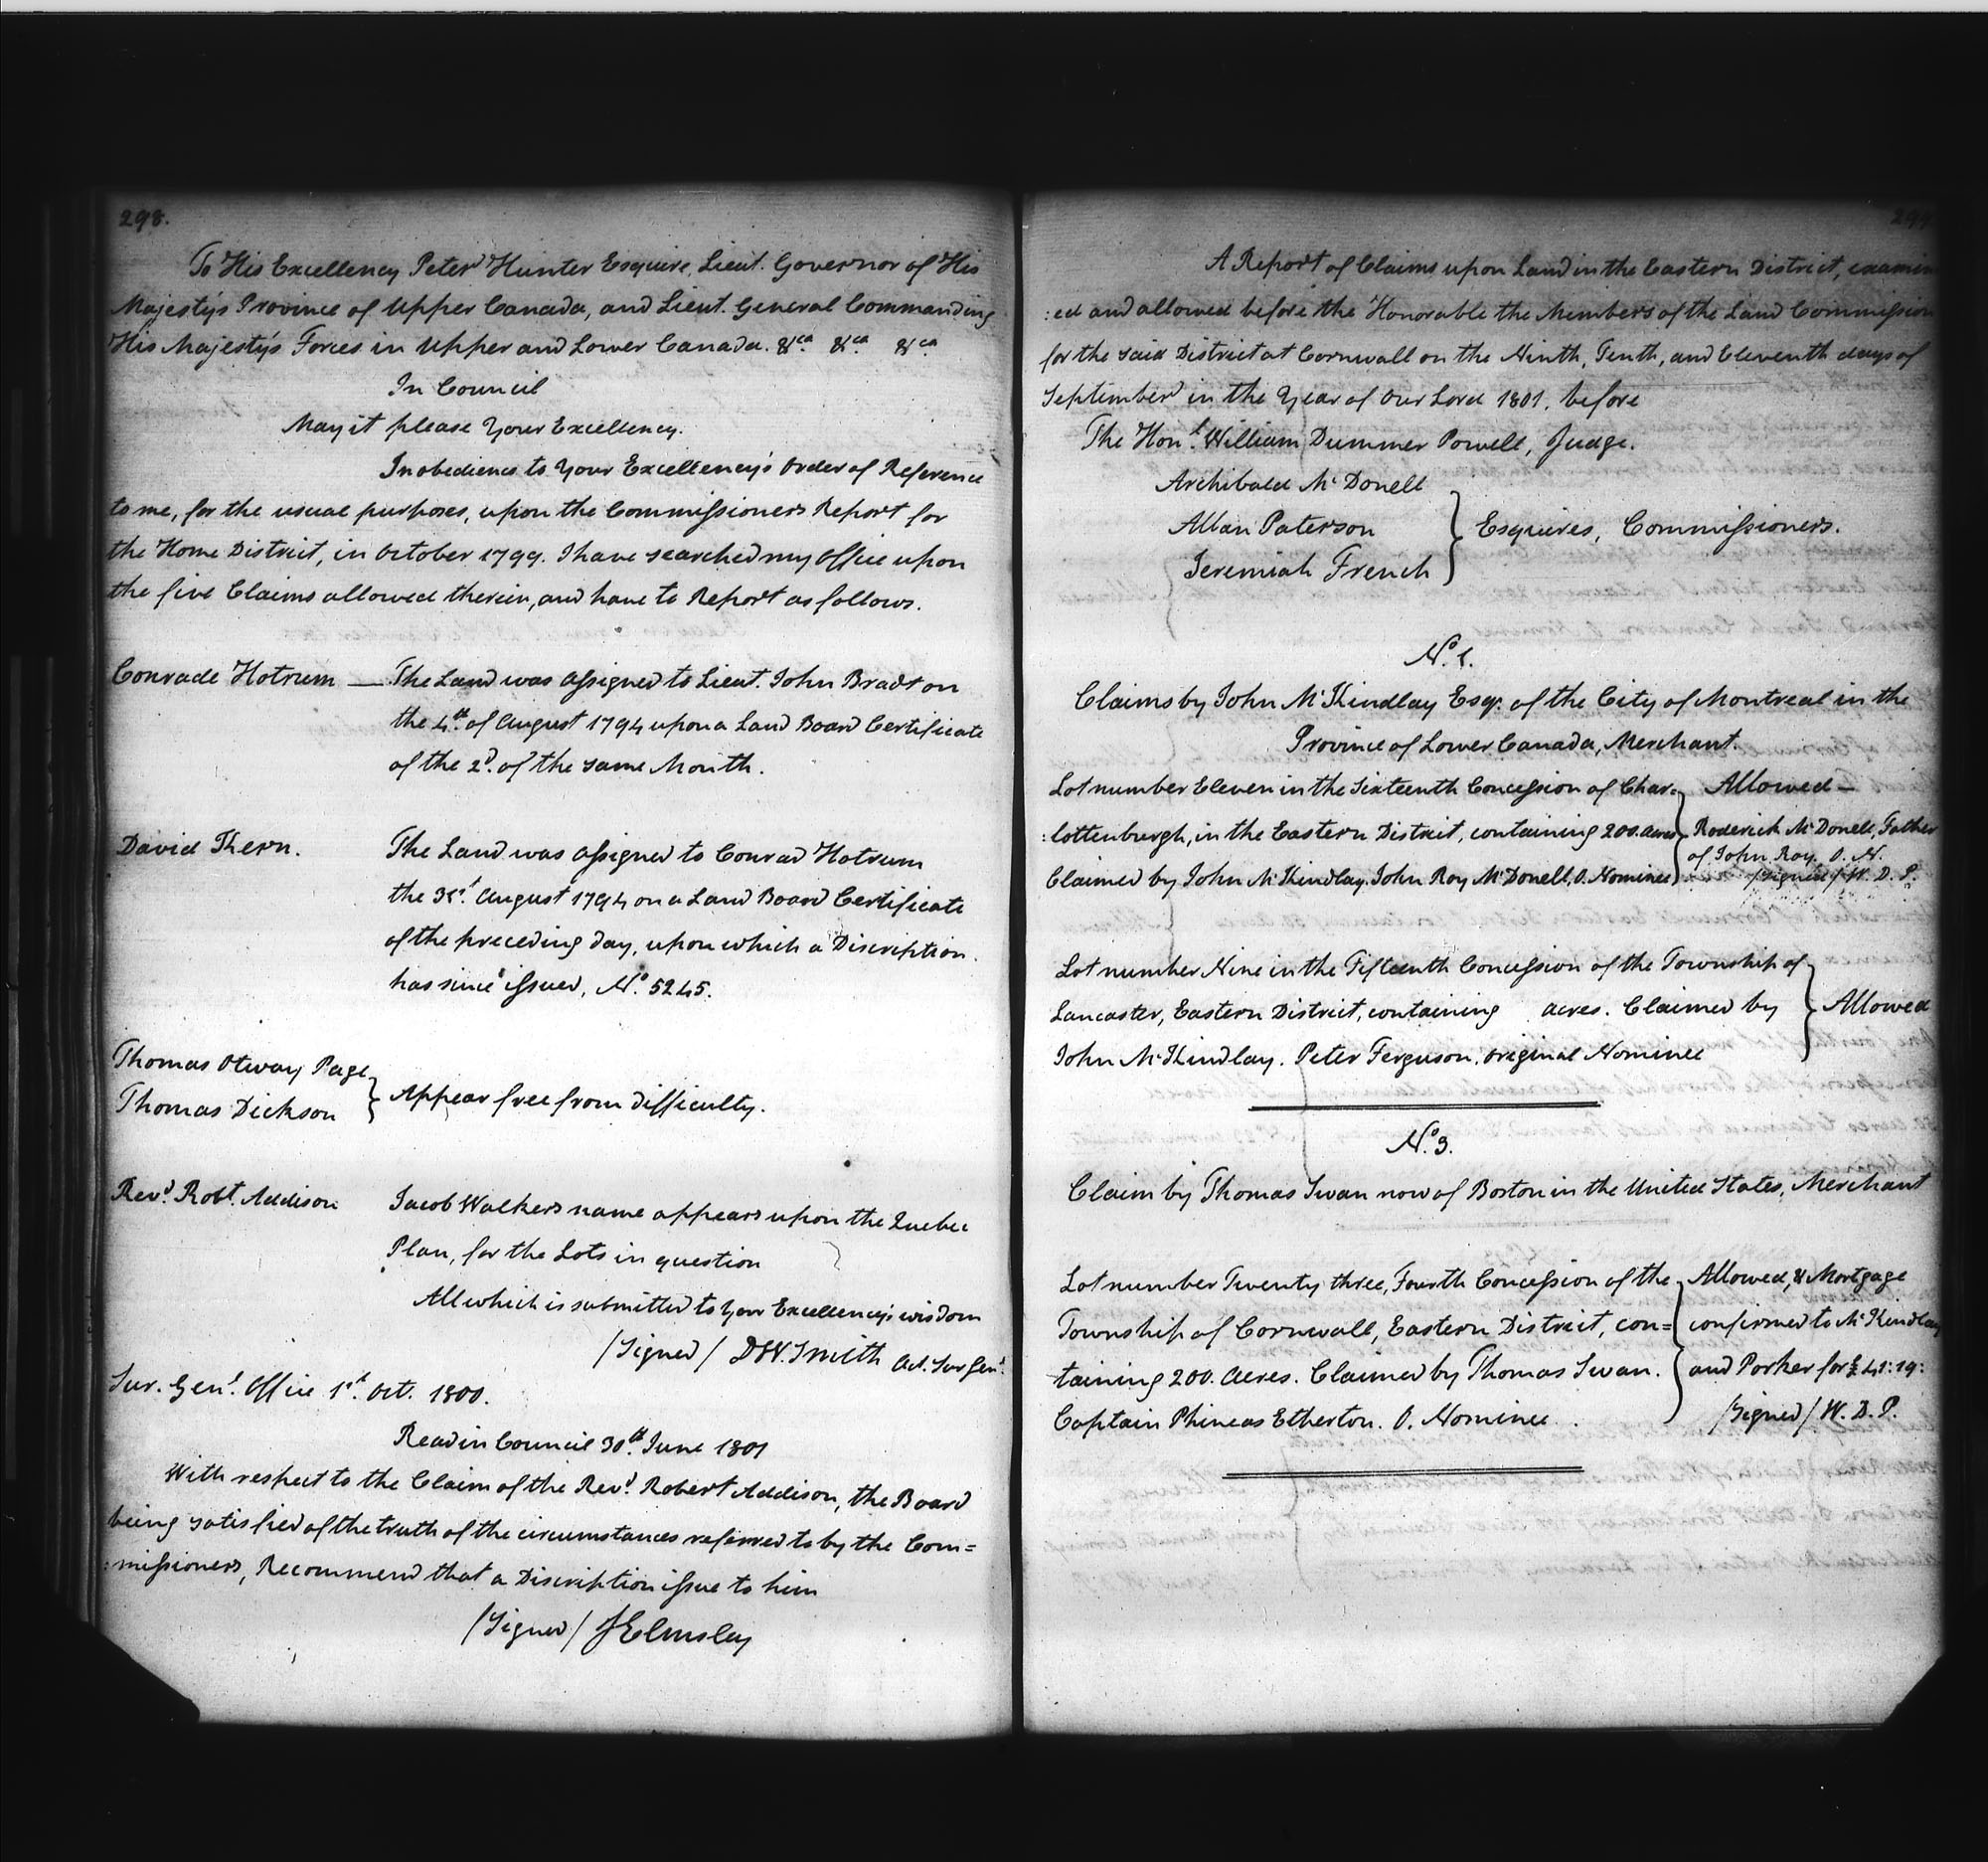 298.
To His Excellency Peter Hunter Esquire, Lieut. Governor of His
Majesty's Province of Upper Canada, and Lieut. General Commanding
His Majesty's Forces in Upper and Lower Canada. &ca &ca &ca
In Council
May it please Your Excellency.
In obedience to Your Excellency's Order of Reference
to me, for the usual purposes, upon the Commissioners Report for
the Home District, in October 1799. I have searched my Office upon
the five Claims allowed therein, and have to Report as follows.
Conrade Hotrum — The Land was assigned to Lieut. John Bradt on
the 4th. of August 1794 upon a Land Board Certificate
of the 2d. of the same Month.
David Thern. The Land was assigned to Conrad Hotrum
the 31st. August 1794 on a Land Board Certificate
of the preceding day, upon which a Discription
has since issued, No. 5245.
Thomas Otway Page
Thomas Dickson } Appear free from difficulty.
Revd. Robt. Addison Jacob Walkers name appears upon the Quebec
Plan, for the Lots in question
All which is submitted to Your Excellency's wisdom
/Signed/ D W. Smith Act. Sur Genl.
Sur. Genl. Office 1st. Oct. 1800.
Read in Council 30th. June 1801
With respect to the Claim of the Revd. Robert Addison, the Board
being satisfied of the truth of the circumstances referred to by the Com=
:missioners, Recommend that a Discription issue to him
/Signed/ J Elmsley
299
A Report of Claims upon Land in the Eastern District, examin
:ed and allowed before the Honorable the Members of the Land Commission
for the said District at Cornwall on the Ninth, Tenth, and Eleventh days of
September in the Year of Our Lord 1801. before
The Honl. William Dummer Powell, Judge.
Archibald Mc Donell
Allan Paterson } Esquires, Commissioners.
Jeremiah French
No. 1.
Claims by John Mc Kindlay Esqr. of the City of Montreal in the
Province of Lower Canada, Merchant.
Lot number Eleven in the Sixteenth Concession of Char- } Allowed —
:lottenburgh, in the Eastern District, containing 200. acres } Roderick Mc Donell, Father
of John Roy. O. N.
Claimed by John Mc Kindlay. John Roy Mc Donell, O. Nominee } /Signed/ W. D. P.
Lot number Nine in the Fifteenth Concession of the Township of
Lancaster, Eastern District, containing acres. Claimed by } Allowed
John Mc Kindlay. Peter Ferguson. original Nominee
No. 3.
Claim by Thomas Swan now of Boston in the United States, Merchant
Lot number Twenty three, Fourth Concession of the } Allowed, & Mortgage
Township of Cornwall, Eastern District, con= } confirmed to Mc Kindlay
taining 200. Acres. Claimed by Thomas Swan. } and Porker for £41:19:
Captain Phineas Etherton. O. Nominee. /Signed/ W. D. P.